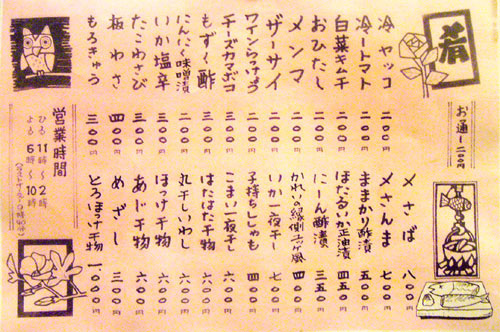 肴
お通し 二〇〇円
冷ヤッコ 二〇〇円
冷トマト 二〇〇円
白菜キムチ 二〇〇円
おひたし 二〇〇円
メンマ 二〇〇円
ザーサイ 二〇〇円
ワインらっきょう 二〇〇円
チーズカマボコ 二〇〇円
もずく酢 三〇〇円
にんにく味噌漬 二〇〇円
いか塩辛 三〇〇円
たこわさび 三〇〇円
板わさ 四〇〇円
もろきゅう 三〇〇円
〆さば 八〇〇円
〆さんま 七〇〇円
ままかり酢漬 五〇〇円
ほたるいか正油漬 四五〇円
にしん酢漬 三五〇円
かれいの縁側 風 四〇〇円
いか一夜干 七〇〇円
子持ちししゃも 四〇〇円
こまい一夜干し 六〇〇円
はたはた干物 六〇〇円
丸干しいわし 六〇〇円
ほっけ干物 六〇〇円
あじ干物 六〇〇円
めざし 三〇〇円
とろほっけ干物 一,〇〇〇円
営業時間
ひる 11時〜2時
よる 6時〜10時